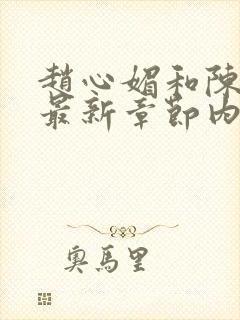 趙心媚和陳
最新章節內
奧馬里